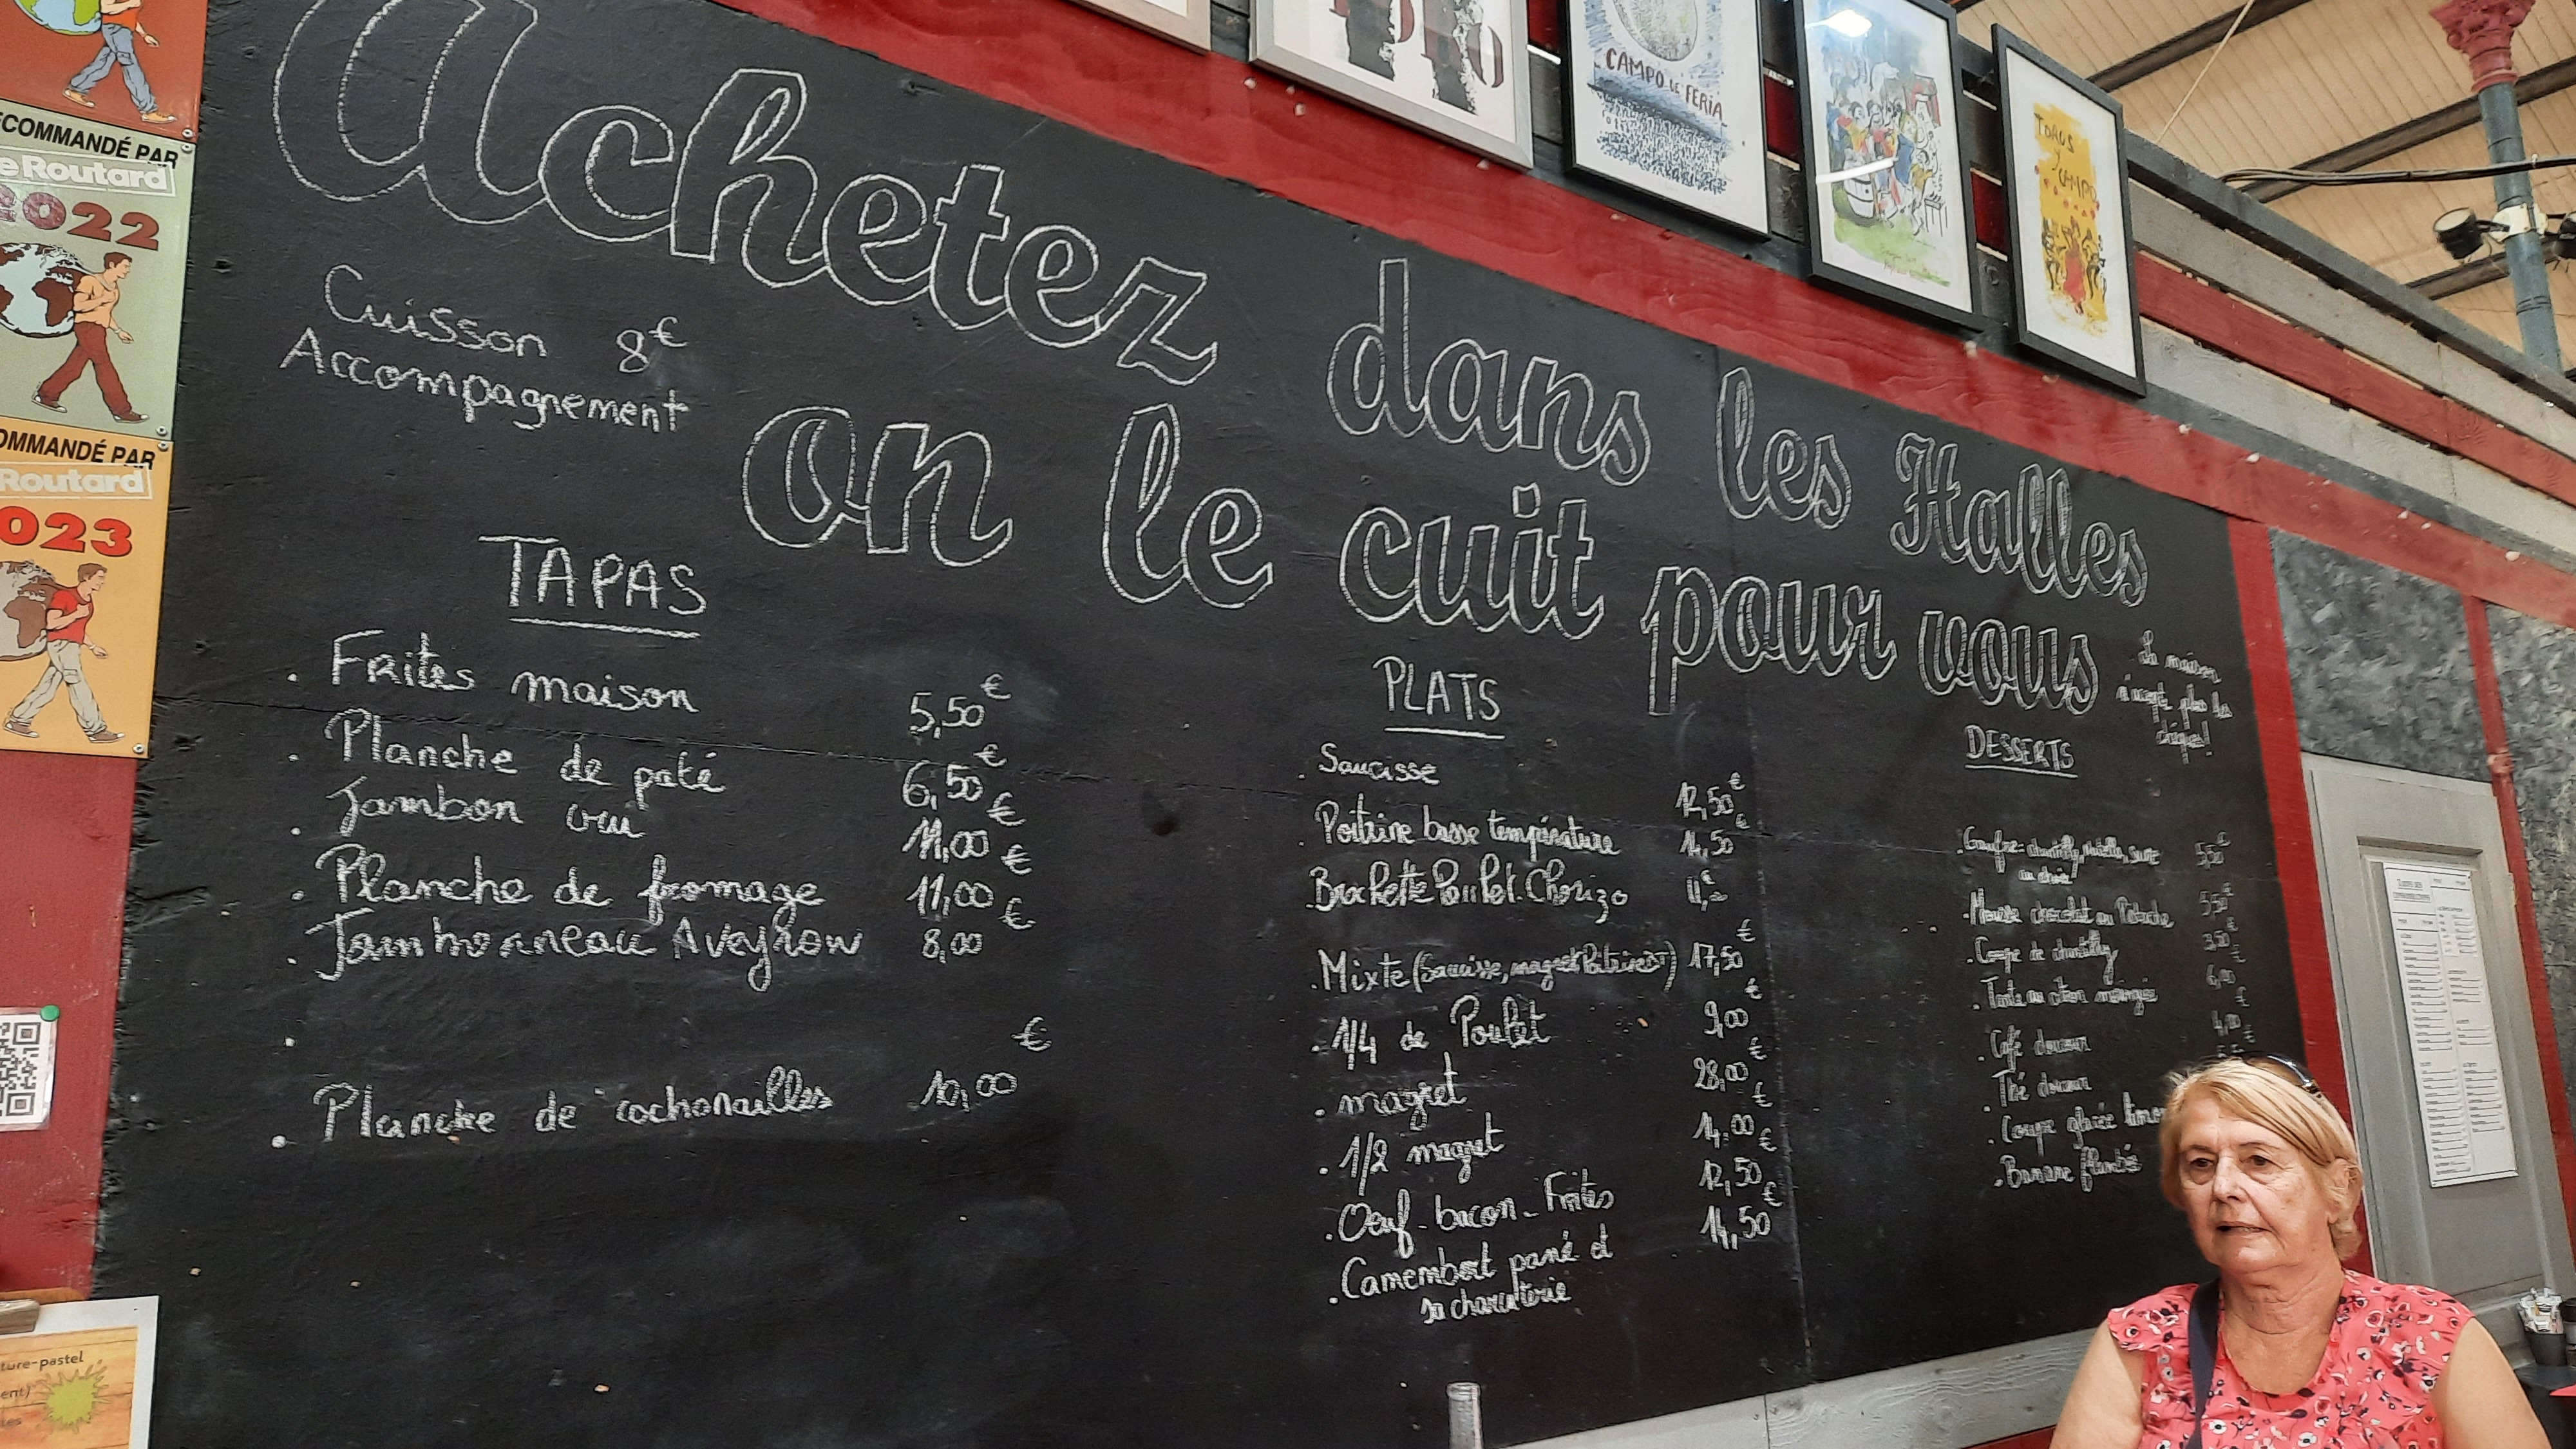 Achetez
dans les Halles
on le cuit pour vous
Cuisson 8€
Accompagnement
TAPAS
. Frites maison 5,50€
. Planche de paté 6,50€
. Jambon cru 11,00€
. Planche de fromage 11,00€
. Jambonneau Aveyron 8,00€
. €
. Planche de cochonailles 10,00
PLATS
. Saucisse 12,50€
. Poitrine basse température 14,50€
. Brochette Poulet-Chorizo 11,-€
. Mixte (Saucisse, magret Poitrine BT) 17,50€
. 1/4 de Poulet 9,00€
. magret 28,00€
. 1/2 magret 14,00€
. Oeuf-bacon-Frites 12,50€
. Camembert pané et 14,50€
sa charcuterie
La maison
n'accepte plus les
chèques!
DESSERTS
. Gaufre: chantilly, nutella, sucre 5,50€
au choix
. Mousse chocolat ou Pistache 5,50€
. Coupe de chantilly 3,50€
. Tarte au citron meringuée
. Café douceur
. Thé douceur
. Coupe glacée
. Banane flambée
ECOMMANDÉ PAR
e Routard
2022
OMMANDÉ PAR
Routard
023
CAMPO DE FERIA
TOROS
Y
CAMPO
ture-pastel
ent)